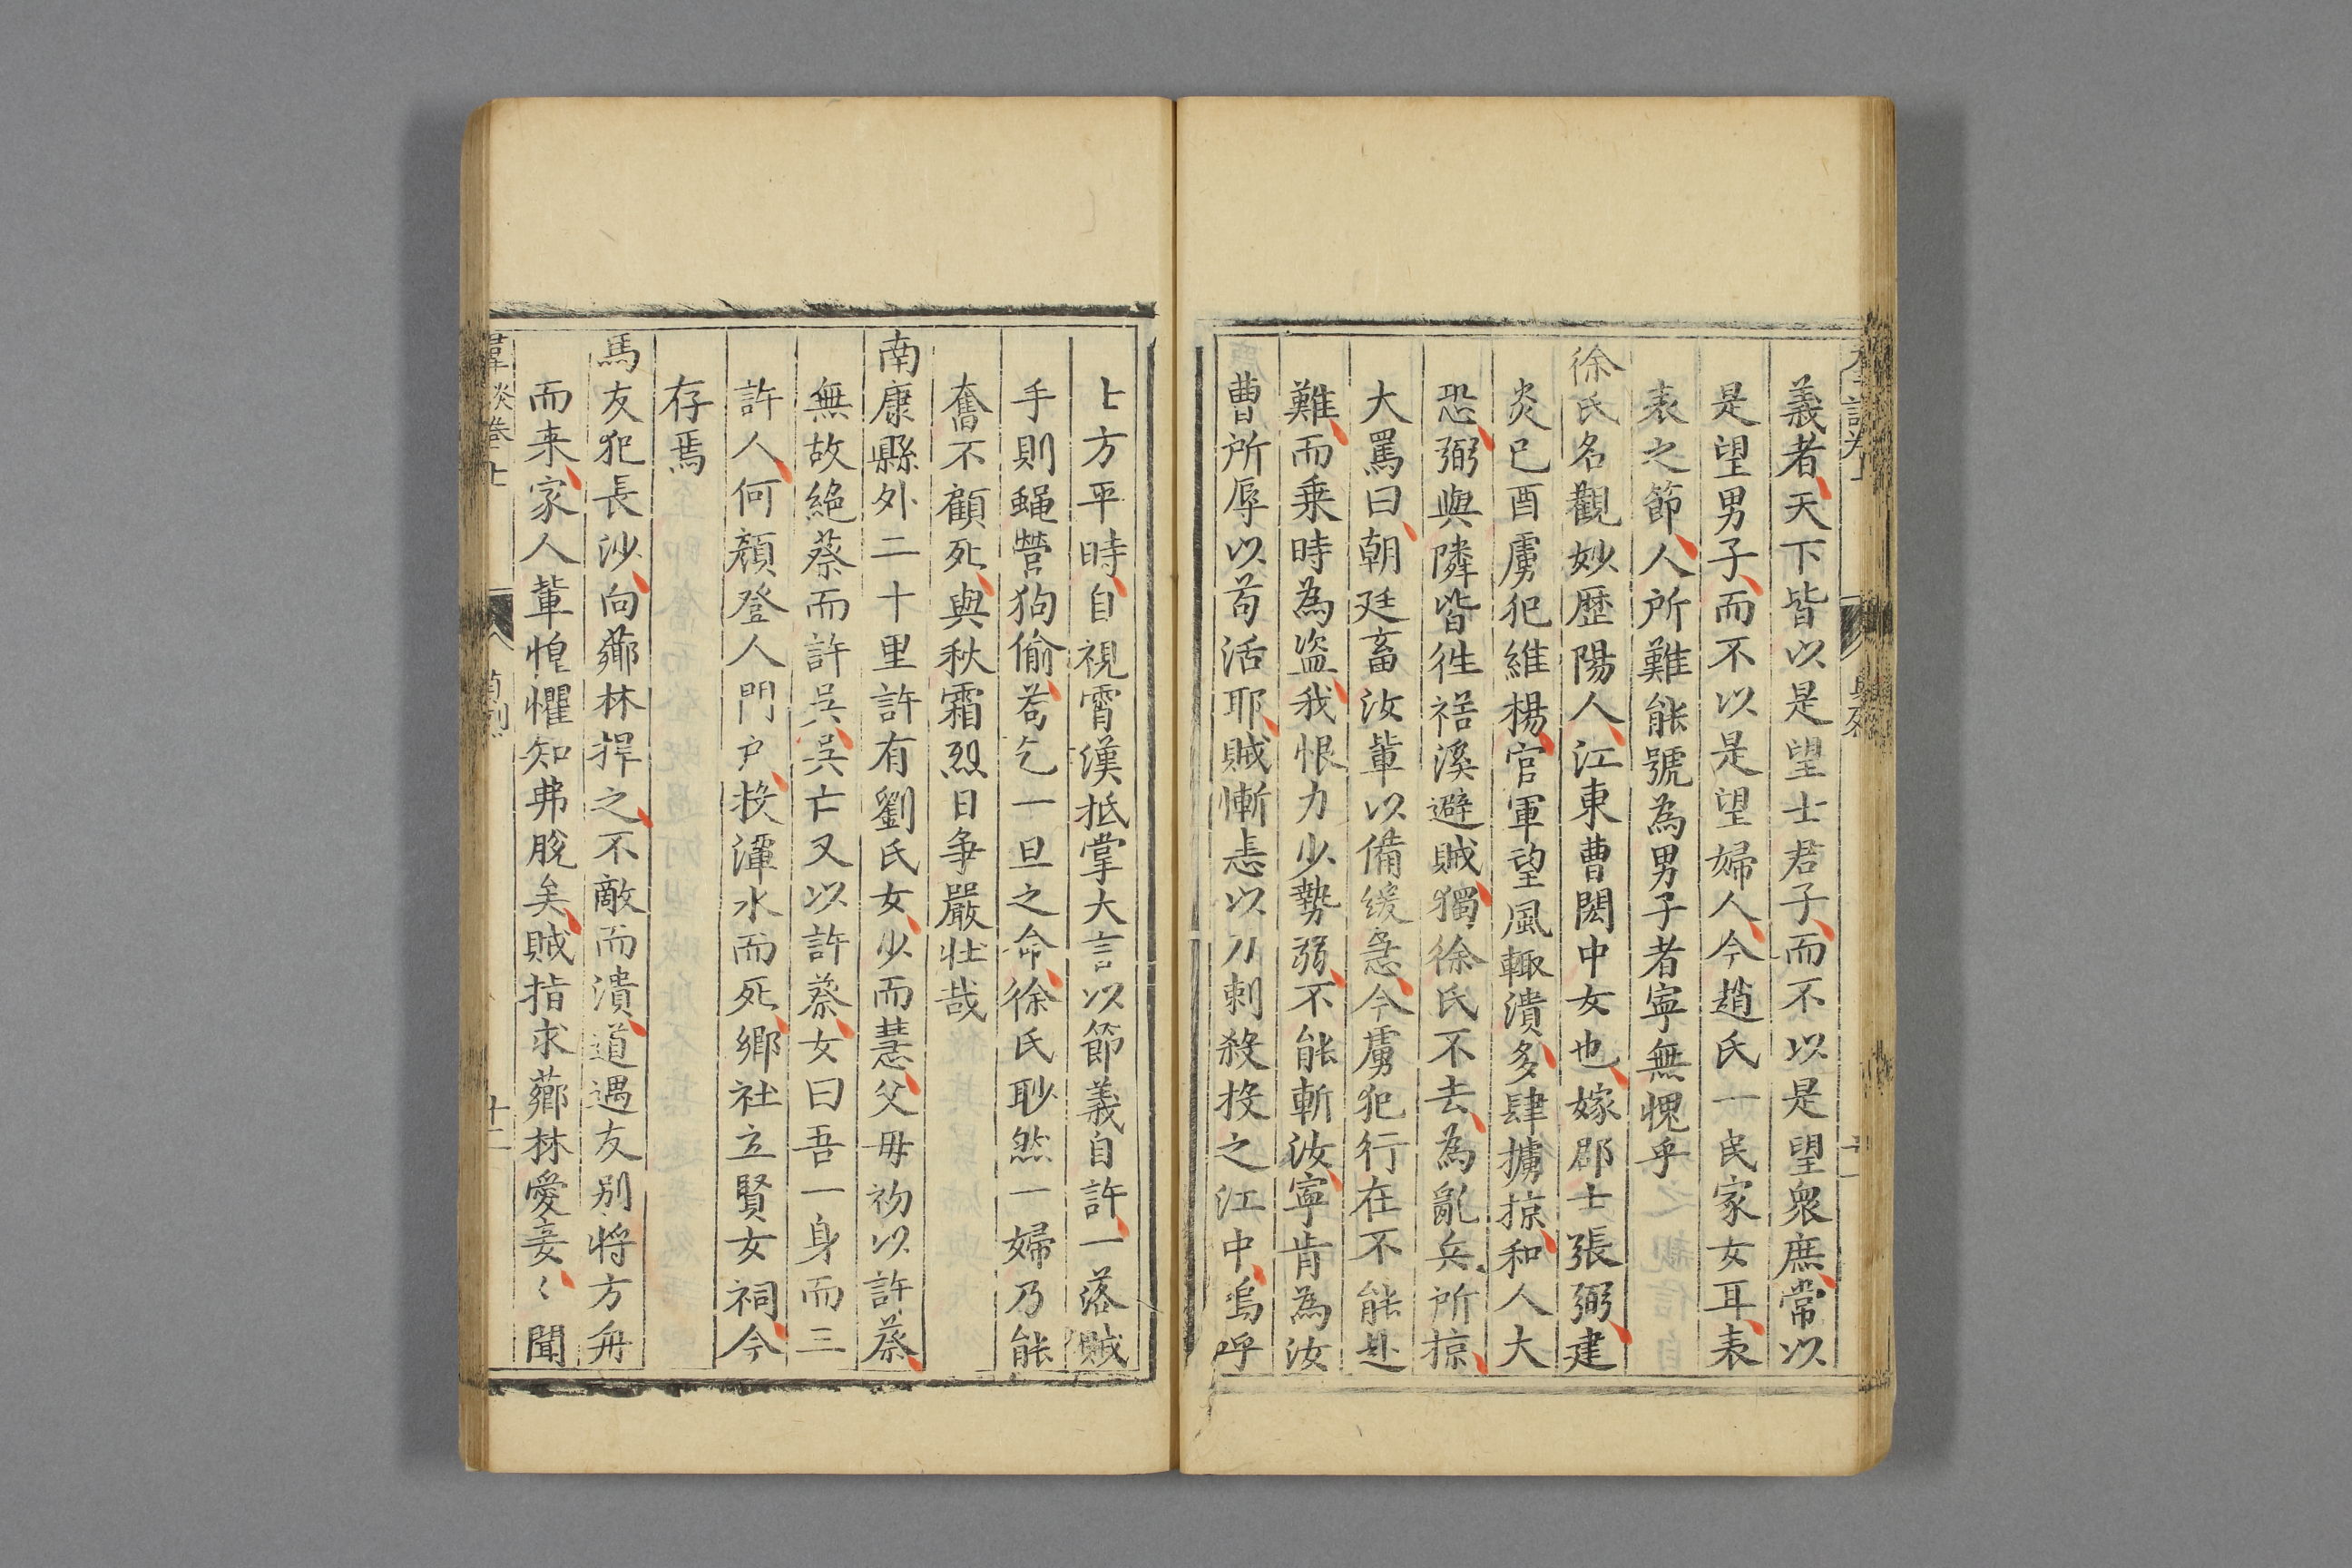 義者天下皆以是望士君子而不以是望衆庶常以
是望男子而不以是望婦人今趙氏一民家女耳表
表之節人所難能號為男子者寧無愧乎
徐氏名觀妙歴陽人江東曹閎中女也嫁郡士張弼建
炎已酉虜犯維楊官軍望風輙潰多肆擄掠和人大
恐弼與隣皆徃禇溪避賊獨徐氏不去為亂兵所掠
大罵曰朝廷畜汝輩以備緩急今虜犯行在不能赴
難而乗時為盗我恨力少勢弱不能斬汝寧肯為汝
曹所辱以苟活耶賊慚恚以刀刺殺投之江中嗚呼
士方平時自視霄漢抵掌大言以節義自許一落賊
手則蝇營狗偷茍乞一旦之命徐氏眇然一婦乃能
奮不顧死與秋霜烈日争嚴壮哉
南康縣外二十里許有劉氏女少而慧父毋初以許蔡
無故絶蔡而許吳吳亡又以許蔡女曰吾一身而三
許人何顔登人門户投渾水而死鄉社立賢女祠今
存焉
馬友犯長沙向薌林捍之不敵而潰道遇友别將方舟
而来家人輩惶懼知弗脫矣賊指求薌林愛妾〻聞
十二